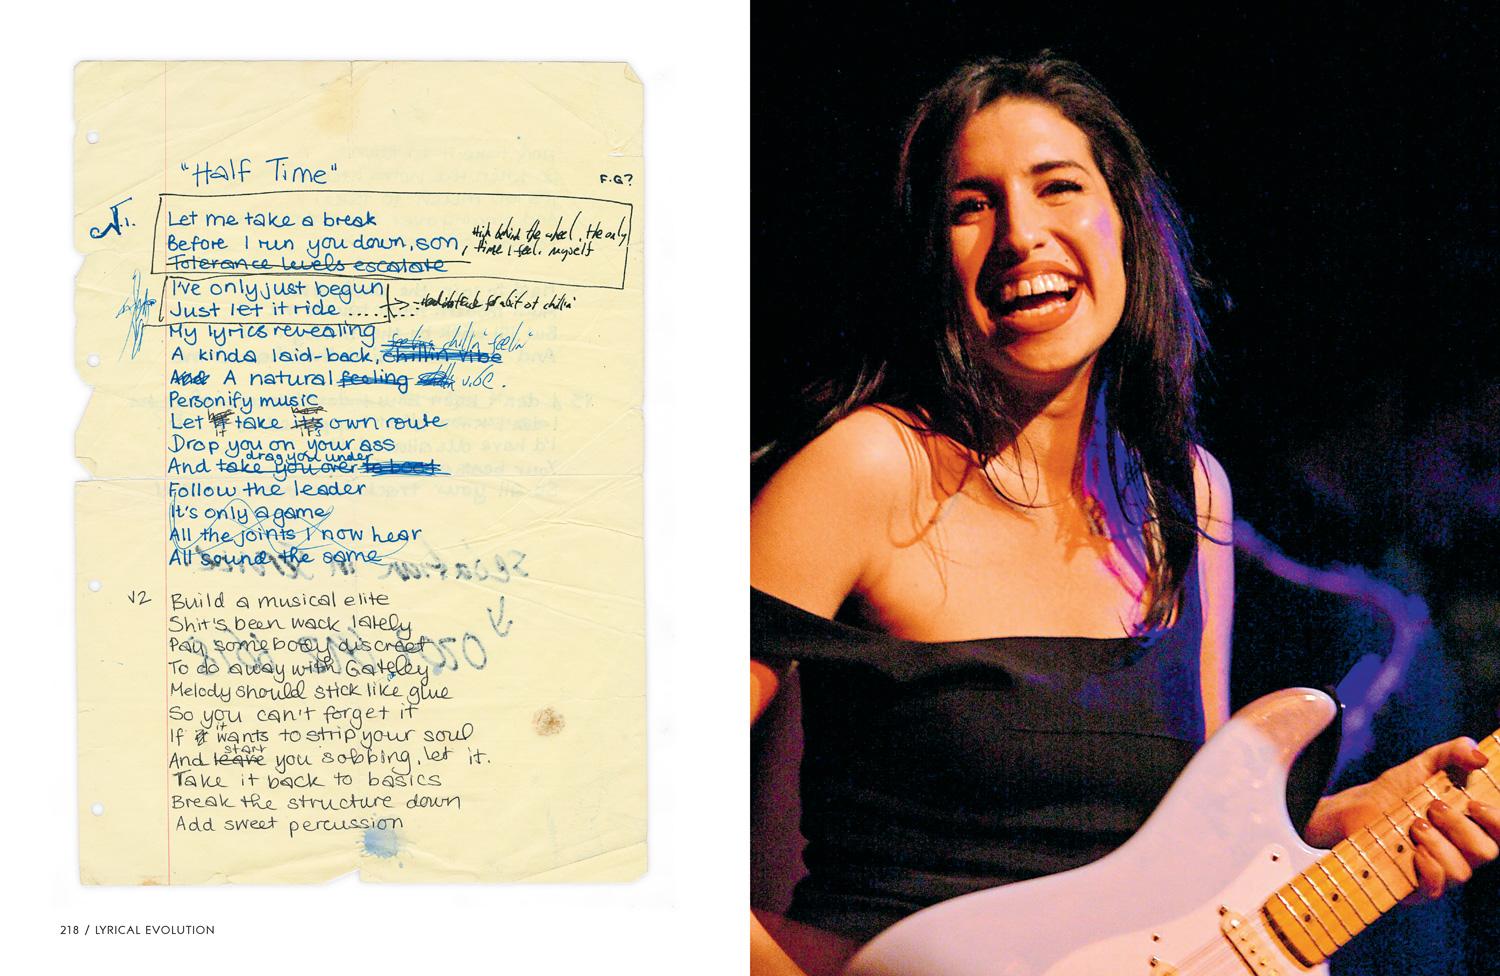 "Half Time"
F.G?
V.1.
Let me take a break
Before I run you down, son,
High behind the wheel, the only
time I feel myself
Tolerance levels escalate
I've only just begun
Just let it ride ....
for a bit of chillin'
My lyrics revealing
feeling chillin' feelin'
A kinda laid-back, chillin vibe
And A natural feeling vibe.
Personify music
Let it take its own route
it it's
Drop you on your ass
drag you under
And take you over to boot
Follow the leader
It's only a game
All the joints I now hear
All sound the same
V2
Build a musical elite
Shit's been wack lately
Pay somebody discreet
To do away with Gateley
Melody should stick like glue
So you can't forget it
it
If it wants to strip your soul
start
And leave you sobbing, let it.
Take it back to basics
Break the structure down
Add sweet percussion
218 / LYRICAL EVOLUTION